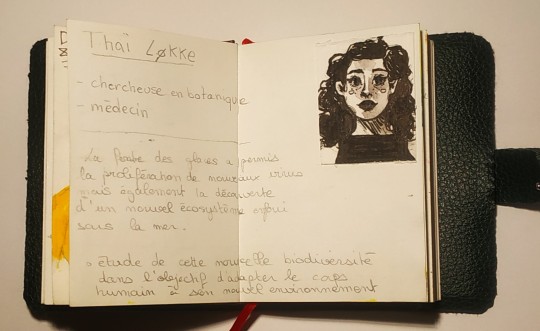 Thaï Løkke
- chercheuse en botanique
- médecin
La fonte des glaces a permis
la prolifération de nouveaux virus
mais également la découverte
d'un nouvel écosystème enfoui
sous la mer.
étude de cette nouvelle biodiversité
dans l'objectif d'adapter le corps
humain à son nouvel environnement